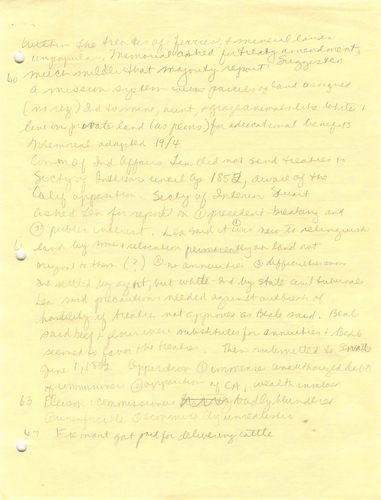 Within the treaties of ferries, + mineral lands
unpopular. Memorial asked for treaty amendment,
60 much milder that majority report. Suggested
a mission system parcels of land assigned
(no res) Ind to mine, hunt, + graze animals like white +
live on private land (as peons) for educational benefits
Memorial adopted 19/4
Comm of Ind Affairs Lea did not send treaties to
Secty of Interior until Ap 1852, aware of the
Calif opposition. Secty of Interior Stuart
asked Lea for report on ① precedent-breaking and
② public interest. Lea said it was new to relinquish
land by + relocation on land not
to them (?) ② no annuities ③
Ind settled by agt, but white-Ind by state and
Lea said precautions needed against outbreak of
hostility if treaties not approved as Beale said. Beale
said substitutes for annuities + Beale
seemed to favor the treaties. Then submitted to Senate
June 1, 1852. Opposition ① immense unauthorized debt
of commissioners ② opposition of CA, wealth
63 Ellison: commissioners badly blundered
① ② economically unrealistic
67 Fremont got paid for delivering cattle